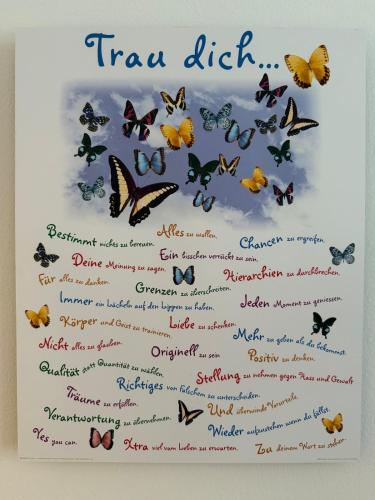 Trau dich...
Alles zu wollen.
Bestimmt nichts zu bereuen.
Chancen zu ergreifen.
Deine Meinung zu sagen.
Ein bisschen verrückt zu sein.
Für alles zu danken.
Grenzen zu überschreiten.
Hierarchien zu durchbrechen.
Immer ein Lächeln auf den Lippen zu haben.
Jeden Moment zu geniessen.
Körper und Geist zu trainieren.
Liebe zu schenken.
Mehr zu geben als du bekommst.
Nicht alles zu glauben.
Originell zu sein.
Positiv zu denken.
Qualität statt Quantität zu wählen.
Richtiges von Falschem zu unterscheiden.
Stellung zu nehmen gegen Hass und Gewalt.
Träume zu erfüllen.
Und überwinde Vorurteile.
Verantwortung zu übernehmen.
Wieder aufzustehen wenn du fällst.
Xtra viel vom Leben zu erwarten.
Yes you can.
Zu deinem Wort zu stehen.